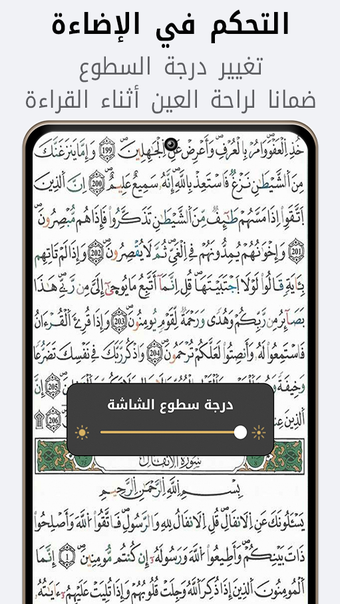 التحكم في الإضاءة
تغيير درجة السطوع
ضمانا لراحة العين أثناء القراءة
خُذِ ٱلْعَفْوَ وَأْمُرْ بِٱلْعُرْفِ وَأَعْرِضْ عَنِ ٱلْجَٰهِلِينَ ١٩٩ وَإِمَّا يَنزَغَنَّكَ
مِنَ ٱلشَّيْطَٰنِ نَزْغٌ فَٱسْتَعِذْ بِٱللَّهِ إِنَّهُۥ سَمِيعٌ عَلِيمٌ ٢٠٠ إِنَّ ٱلَّذِينَ
ٱتَّقَوْا۟ إِذَا مَسَّهُمْ طَٰٓئِفٌ مِّنَ ٱلشَّيْطَٰنِ تَذَكَّرُوا۟ فَإِذَا هُم مُّبْصِرُونَ
٢٠١ وَإِخْوَٰنُهُمْ يَمُدُّونَهُمْ فِى ٱلْغَىِّ ثُمَّ لَا يُقْصِرُونَ ٢٠٢ وَإِذَا لَمْ تَأْتِهِم
بِـَٔايَةٍ قَالُوا۟ لَوْلَا ٱجْتَبَيْتَهَا قُلْ إِنَّمَآ أَتَّبِعُ مَا يُوحَىٰٓ إِلَىَّ مِن رَّبِّى هَٰذَا
بَصَآئِرُ مِن رَّبِّكُمْ وَهُدًى وَرَحْمَةٌ لِّقَوْمٍ يُؤْمِنُونَ ٢٠٣ وَإِذَا قُرِئَ ٱلْقُرْءَانُ
فَٱسْتَمِعُوا۟ لَهُۥ وَأَنصِتُوا۟ لَعَلَّكُمْ تُرْحَمُونَ ٢٠٤ وَٱذْكُر رَّبَّكَ فِى نَفْسِكَ تَضَرُّعًا
وَخِيفَةً
٢٠٥ إِنَّ
ٱلَّذِينَ عِن
٢٠٦
درجة سطوع الشاشة
سُورَةُ الأَنفَالِ
بِسْمِ ٱللَّهِ ٱلرَّحْمَٰنِ ٱلرَّحِيمِ
يَسْـَٔلُونَكَ عَنِ ٱلْأَنفَالِ قُلِ ٱلْأَنفَالُ لِلَّهِ وَٱلرَّسُولِ فَٱتَّقُوا۟ ٱللَّهَ وَأَصْلِحُوا۟
ذَاتَ بَيْنِكُمْ وَأَطِيعُوا۟ ٱللَّهَ وَرَسُولَهُۥٓ إِن كُنتُم مُّؤْمِنِينَ ١ إِنَّمَا
ٱلْمُؤْمِنُونَ ٱلَّذِينَ إِذَا ذُكِرَ ٱللَّهُ وَجِلَتْ قُلُوبُهُمْ وَإِذَا تُلِيَتْ عَلَيْهِمْ ءَايَٰتُهُۥ